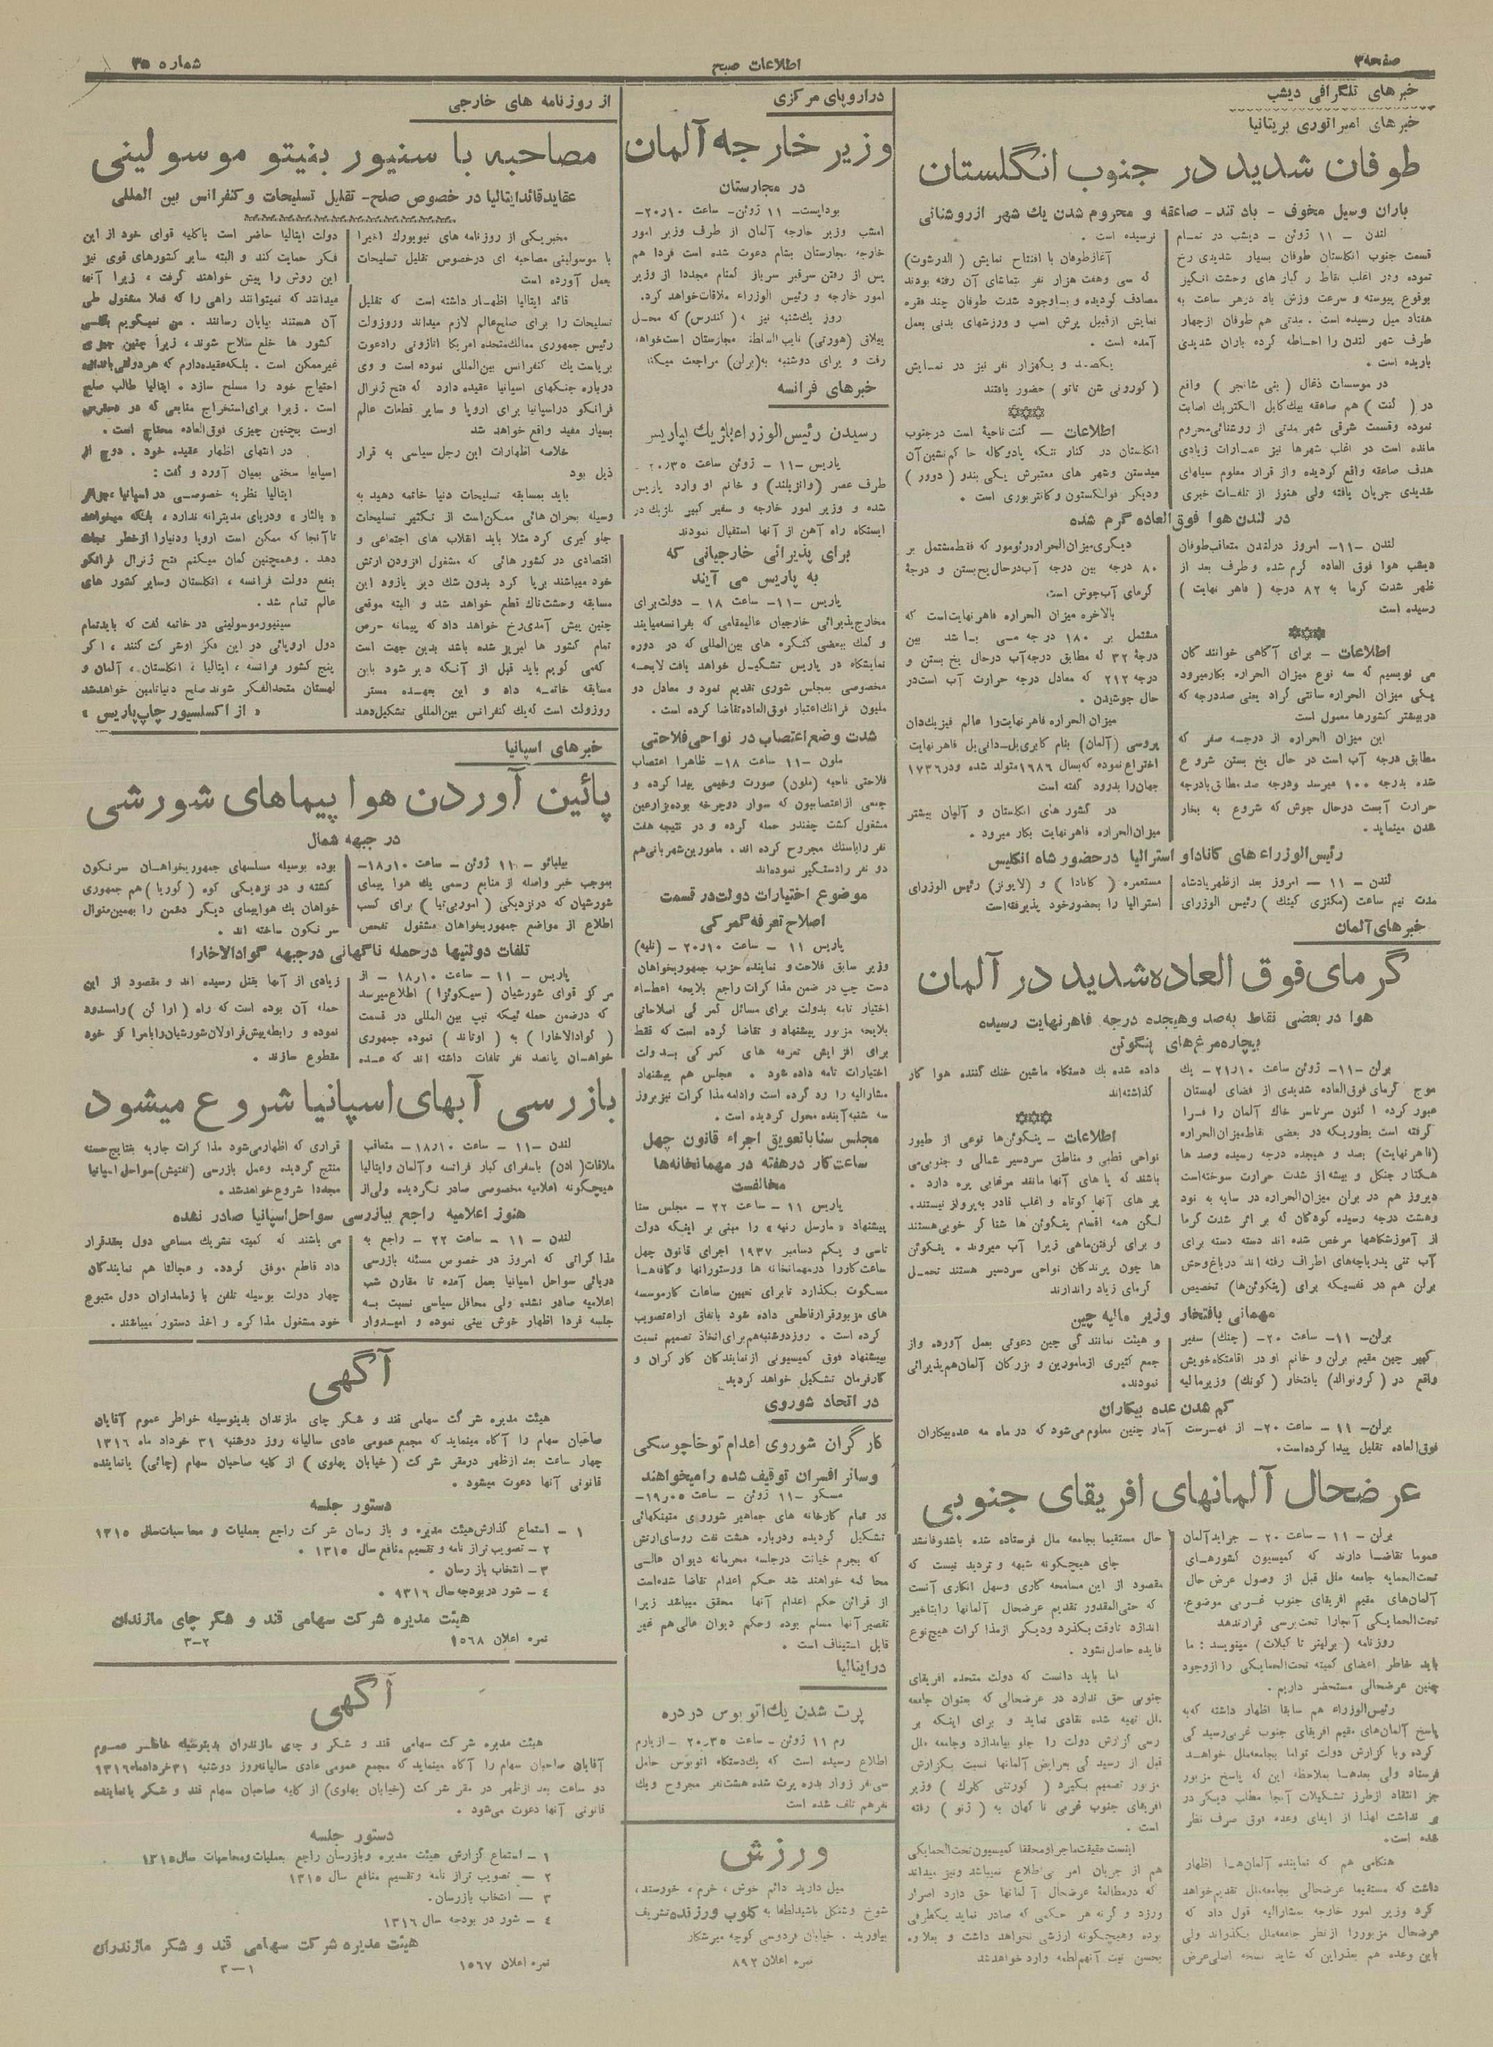 صفحه ۳
اطلاعات صبح
شماره ۳۵
خبرهای تلگرافی دیشب
خبرهای امپراتوری بریتانیا
طوفان شدید در جنوب انگلستان
باران وسیل مخوف - باد تند - صاعقه و محروم شدن یك شهر ازروشنائی
لندن - ۱۱ ژوئن - دیشب در تمام
قسمت جنوب انگلستان طوفان بسیار شدیدی رخ
نموده ودر اغلب نقاط رگبار های وحشت انگیز
بوقوع پیوسته و سرعت وزش باد درهر ساعت به
هفتاد میل رسیده است . مدتی هم طوفان ازچهار
طرف شهر لندن را احاطه کرده باران شدیدی
باریده است .
در موسسات ذغال ( بتی شانجر ) واقع
در ( کنت ) هم صاعقه بیك کابل الکتریك اصابت
نموده وقسمت شرقی شهر مدتی از روشنائی محروم
مانده است در اغلب شهرها نیز عمارات زیادی
هدف صاعقه واقع گردیده و از قرار معلوم سیلهای
شدیدی جریان یافته ولی هنوز از تلفات خبری
نرسیده است .
آغازطوفان با افتتاح نمایش ( الدرشوت)
که سی وهفت هزار نفر بتماشای آن رفته بودند
مصادف گردیده و باوجود شدت طوفان چند فقره
نمایش ازقبیل پرش اسب و ورزشهای بدنی بعمل
آمده است .
یکصد و یکهزار نفر نیز در نمایش
( کورونی شن تاتو ) حضور یافتند
اطلاعات - کنت ناحیهٔ است درجنوب
انگلستان در کنار تنگه پادوکاله حاکم نشین آن
میدستن وشهر های معتبرش یکی بندر ( دوور )
ودیگر فولکستون و کانتربوری است .
در لندن هوا فوق العاده گرم شده
لندن -۱۱- امروز درلندن متعاقب طوفان
دیشب هوا فوق العاده گرم شده و طرف بعد از
ظهر شدت گرما به ۸۲ درجه ( فاهر نهایت )
رسیده است
اطلاعات - برای آگاهی خوانندگان
می نویسیم که سه نوع میزان الحراره بکارمیرود
یکی میزان الحراره سانتی گراد یعنی صددرجه که
دربیشتر کشورها معمول است
این میزان الحراره از درجه صفر که
مطابق درجه آب است در حال یخ بستن شروع
شده بدرجه ۱۰۰ میرسد ودرجه صد مطابق بادرجه
حرارت آبست درحال جوش که شروع به بخار
شدن مینماید .
دیگری میزان الحراره رئومور که فقط مشتمل بر
۸۰ درجه بین درجه آب درحال یخ بستن و درجهٔ
گرمای آب جوش است
بالاخره میزان الحراره فاهر نهایت است که
مشتمل بر ۱۸۰ درجه می باشد بین
درجهٔ ۳۲ که مطابق درجه آب درحال یخ بستن و
درجه ۲۱۲ که معادل درجه حرارت آب است در
حال جوشیدن .
میزان الحراره فاهر نهایت را عالم فیزیك دان
پروسی (آلمان) بنام گابری یل-دانی یل فاهر نهایت
اختراع نموده که بسال ۱۶۸۶ متولد شده و در ۱۷۳۶
جهان را بدرود گفته است
در کشور های انگلستان و آلمان بیشتر
میزان الحراره فاهر نهایت بکار میرود .
رئیس الوزراء های کانادا و استرالیا درحضور شاه انگلیس
لندن - ۱۱ - امروز بعد ازظهر پادشاه
مدت نیم ساعت (مکنزی کینك ) رئیس الوزرای
مستعمره ( کانادا ) و (لایونز) رئیس الوزرای
استرالیا را بحضورخود پذیرفته است
خبر های آلمان
گرمای فوق العاده شدید در آلمان
هوا در بعضی نقاط به صد وهیجده درجه فاهر نهایت رسیده
بیچاره مرغ های پنگوئن
برلن -۱۱- ژوئن ساعت ۲۱٫۱۰- یك
موج گرمای فوق العاده شدیدی از فضای لهستان
عبور کرده اکنون سرتاسر خاك آلمان را فرا
گرفته است بطوریکه در بعضی نقاط میزان الحراره
(فاهر نهایت) بصد و هیجده درجه رسیده وصد ها
هکتار جنگل و بیشه از شدت حرارت سوخته است
دیروز هم در برلن میزان الحراره در سایه به نود
وهشت درجه رسیده کودکان که بر اثر شدت گرما
از آموزشگاهها مرخص شده اند دسته دسته برای
آب تنی بدریاچه های اطراف رفته اند در باغ وحش
برلن هم در قفسیکه برای (پنگوئن ها) تخصیص
داده شده یك دستگاه ماشین خنك کننده هوا کار
گذاشته اند
اطلاعات - پنگوئن ها نوعی از طیور
نواحی قطبی و مناطق سردسیر شمالی و جنوبی می
باشند که پا های آنها مانند مرغابی پره دارد .
پر های آنها کوتاه و اغلب قادر به پرواز نیستند .
لکن همه اقسام پنگوئن ها شنا گر خوبی هستند
و برای گرفتن ماهی زیرا آب میروند . پنگوئن
ها چون پرندگان نواحی سردسیر هستند تحمل
گرمای زیاد راندارند
مهمانی بافتخار وزیر مالیه چین
برلن- ۱۱- ساعت ۲۰- (چنك) سفیر
کبیر چین مقیم برلن و خانم او در اقامتگاه خویش
واقع در ( گرونوالد) بافتخار (کونك) وزیر مالیه
و هیئت نمایندگی چین دعوتی بعمل آورده واز
جمع کثیری ازمامورین و بزرگان آلمان هم پذیرائی
نمودند.
کم شدن عده بیکاران
برلن- ۱۱ - ساعت ۲۰- از فهرست آمار چنین معلوم می شود که در ماه مه عده بیکاران
فوق العاده تقلیل پیدا کرده است.
عرضحال آلمانهای افریقای جنوبی
برلن - ۱۱ - ساعت ۲۰ - جراید آلمان
عموما تقاضا دارند که کمیسیون کشورهای
تحت الحمایه جامعه ملل قبل از وصول عرض حال
آلمان های مقیم افریقای جنوب غربی موضوع
تحت الحمایگی آنجارا تحت بررسی قرارندهد
روزنامه ( برلینر تا گبلات ) مینویسد : ما
باید خاطر اعضای کمیته تحت الحمایگی را ازوجود
چنین عرضحالی مستحضر داریم .
رئیس الوزراء هم سابقا اظهار داشته که به
پاسخ آلمان های مقیم افریقای جنوب غربی رسیدگی
کرده وبا گزارش دولت تواما بجامعه ملل خواهد
فرستاد ولی بعدها بملاحظه این که پاسخ مزبور
جز انتقاد ازطرز تشکیلات آنجا مطلب دیگر در
بر نداشت لهذا از ایفای وعده فوق صرف نظر
شده است .
هنگامی هم که نماینده آلمان ها اظهار
داشت که مستقیما عرضحالی بجامعه ملل تقدیم خواهد
کرد وزیر امور خارجه بمشارالیه قول داد که
عرضحال مزبوررا ازنظر جامعه ملل بگذراند ولی
باین وعده هم بعذراین که شاید نسخه اصلی عرض
حال مستقیما بجامعه ملل فرستاده شده باشد وفا نشد
جای هیچگونه شبهه و تردید نیست که
مقصود از این مسامحه کاری وسهل انگاری آنست
که حتی المقدور تقدیم عرضحال آلمانها را بتاخیر
اندازد تاوقت بگذرد ودیگر از مذاکرات هیچ نوع
فایده حاصل نشود .
اما باید دانست که دولت متحده افریقای
جنوبی حق ندارد در عرضحالی که بعنوان جامعه
ملل تهیه شده نقادی نماید و برای اینکه بر
رسی گزارش دولت را جلو بیاندازد وجامعه ملل
قبل از رسیدگی بعرایض آلمانها نسبت بگزارش
مزبور تصمیم بگیرد ( کورتنی کلرك ) وزیر
افریقای جنوب غربی ناگهان به ( ژنو ) رفته
است .
اینست حقیقت ماجرا و محققا کمیسیون تحت الحمایگی
هم از جریان امر بی اطلاع نمیباشد ونیز میداند
که درمطالعهٔ عرضحال آلمانها حق دارد اصرار
ورزد و گرنه هر حکمی که صادر نماید یکطرفی
بوده وهیچگونه ارزشی نخواهد داشت و بعلاوه
بحسن نیت آنهم لطمه وارد خواهد شد
دراروپای مرکزی
وزیر خارجه آلمان
در مجارستان
بوداپست- ۱۱ ژوئن- ساعت ۲۰٫۱۰-
امشب وزیر خارجه آلمان از طرف وزیر امور
خارجه مجارستان بشام دعوت شده است فردا هم
پس از رفتن سرقبر سرباز گمنام مجددا از وزیر
امور خارجه و رئیس الوزراء ملاقات خواهد کرد.
روز یك شنبه نیز به ( کندرس) که محل
ییلاق (هورتی) نایب السلطنه مجارستان است خواهد
رفت و برای دوشنبه به (برلن) مراجعت میکند
خبرهای فرانسه
رسیدن رئیس الوزراء بلژیك بپاریس
پاریس -۱۱ - ژوئن ساعت ۲۰٫۳۵-
طرف عصر (وانزیلند) و خانم او وارد پاریس
شده و وزیر امور خارجه و سفیر کبیر بلژیك در
ایستگاه راه آهن از آنها استقبال نمودند
برای پذیرائی خارجیانی که
به پاریس می آیند
پاریس -۱۱- ساعت ۱۸ - دولت برای
مخارج پذیرائی خارجیان عالیمقامی که بفرانسه میایند
و کمك ببعضی کنگره های بین المللی که در دوره
نمایشگاه در پاریس تشکیل خواهد یافت لایحه
مخصوصی بمجلس شوری تقدیم نمود و معادل دو
ملیون فرانك اعتبار فوق العاده تقاضا کرده است .
شدت وضع اعتصاب در نواحی فلاحتی
ملون -۱۱ ساعت ۱۸- ظاهرا اعتصاب
فلاحتی ناحیه (ملون) صورت وخیمی پیدا کرده و
جمعی ازاعتصابیون که سوار دوچرخه بوده بزارعین
مشغول کشت چغندر حمله کرده و در نتیجه هفت
نفر را باسنك مجروح کرده اند . مامورین شهربانی هم
دو نفر رادستگیر نموده اند
موضوع اختیارات دولت در قسمت
اصلاح تعرفه گمرکی
پاریس ۱۱ - ساعت ۲۰٫۱۰ - (تلیه)
وزیر سابق فلاحت و نماینده حزب جمهوریخواهان
دست چپ در ضمن مذاکرات راجع بلایحه اعطاء
اختیار نامه بدولت برای مسائل گمرکی اصلاحاتی
بلایحه مزبور پیشنهاد و تقاضا کرده است که فقط
برای افزایش تعرفه های گمرکی بدولت
اختیارات نامه داده شود . مجلس هم پیشنهاد
مشارالیه را رد کرده است وادامه مذاکرات نیز بروز
سه شنبه آینده محول گردیده است .
مجلس سنا باتعویق اجراء قانون چهل
ساعت کار درهفته در مهمانخانه ها
مخالفست
پاریس ۱۱ - ساعت ۲۲ - مجلس سنا
پیشنهاد « مارسل رنیه » را مبنی بر اینکه دولت
تاسی و یکم دسامبر ۱۹۳۷ اجرای قانون چهل
ساعت کاررا درمهمانخانه ها ورستورانها وکافه ها
مسکوت بگذارد تابرای تعیین ساعات کار موسسه
های مزبورقرارقاطعی داده شود باتفاق آراء تصویب
کرده است . روزدوشنبه هم برای اتخاذ تصمیم نسبت
بپیشنهاد فوق کمیسیونی از نمایندگان کارگران و
کارفرمان تشکیل خواهد گردید
در اتحاد شوروی
کارگران شوروی اعدام توخاچوسکی
وسائر افسران توقیف شده را میخواهند
مسکو -۱۱ ژوئن - ساعت ۱۹٫۰۵-
در تمام کارخانه های جماهیر شوروی متینگهائی
تشکیل گردیده ودرباره هشت نفت روسای ارتش
که بجرم خیانت درجلسه محرمانه دیوان عالی
محاکمه خواهند شد حکم اعدام تقاضا شده است
از قرائن حکم اعدام آنها محقق میباشد زیرا
تقصیر آنها مسلم بوده وحکم دیوان عالی هم غیر
قابل استیناف است .
درایتالیا
پرت شدن یك اتوبوس در دره
رم ۱۱ ژوئن - ساعت ۲۰٫۳۵ - ازپارم
اطلاع رسیده است که یك دستگاه اتوبوس حامل
سی نفر زوار بدره پرت شده هشت نفر مجروح و یك
نفرهم تلف شده است
ورزش
میل دارید دائم خوش ، خرم ، خورسند ،
شوخ وشنگل باشید لطفا به کلوپ ورزنده تشریف
بیاورید . خیابان فردوسی کوچه میرشکار
نمره اعلان ۸۹۲
از روزنامه های خارجی
مصاحبه با سنیور بنیتو موسولینی
عقاید قائد ایتالیا در خصوص صلح- تقلیل تسلیحات و کنفرانس بین المللی
مخبر یکی از روزنامه های نیویورك اخیرا
با موسولینی مصاحبه ای درخصوص تقلیل تسلیحات
بعمل آورده است
قائد ایتالیا اظهار داشته است که تقلیل
تسلیحات را برای صلح عالم لازم میداند وروزولت
رئیس جمهوری ممالك متحده امریکا اتازونی رادعوت
بریاست یك کنفرانس بین المللی نموده است و وی
درباره جنگهای اسپانیا عقیده دارد که فتح ژنرال
فرانکو دراسپانیا برای اروپا و سایر قطعات عالم
بسیار مفید واقع خواهد شد
خلاصه اظهارات این رجل سیاسی به قرار
ذیل بود
باید بمسابقه تسلیحات دنیا خاتمه دهید به
وسیله بحران هائی ممکن است از تکثیر تسلیحات
جلو گیری کرد مثلا باید انقلاب های اجتماعی و
اقتصادی در کشور هائی که مشغول افزودن ارتش
خود میباشند برپا کرد بدون شك دیر یازود این
مسابقه وحشت ناك قطع خواهد شد و البته موقعی
چنین پیش آمدی رخ خواهد داد که پیمانه حرص
تمام کشور ها لبریز شده باشد بدین جهت است
که می گویم باید قبل از آنکه دیر شود باین
مسابقه خاتمه داد و این بعهده مستر
روزولت است که یك کنفرانس بین المللی تشکیل دهد
دولت ایتالیا حاضر است با کلیه قوای خود از این
فکر حمایت کند و البته سایر کشورهای قوی نیز
این روش را پیش خواهند گرفت ، زیرا آنها
میدانند که نمیتوانند راهی را که فعلا مشغول طی
آن هستند بپایان رسانند . من نمیگویم بکلی
کشور ها خلع سلاح شوند ، زیرا چنین چیزی
غیرممکن است . بلکه عقیده دارم که هر دولتی باندازه
احتیاج خود را مسلح سازد . ایتالیا طالب صلح
است . زیرا برای استخراج منابعی که در دسترس
اوست بچنین چیزی فوق العاده محتاج است .
در انتهای اظهار عقیده خود . دوچه از
اسپانیا سخنی بمیان آورد و گفت :
ایتالیا نظریه خصوصی در اسپانیا ، جزایر
« بالئار » ودریای مدیترانه ندارد ، بلکه میخواهد
تاآنجا که ممکن است اروپا ودنیارا از خطر نجات
دهد . وهمچنین گمان میکنم فتح ژنرال فرانکو
بنفع دولت فرانسه ، انگلستان وسایر کشور های
عالم تمام شد .
سینیورموسولینی در خاتمه گفت که باید تمام
دول اروپائی در این فکر کوشش کنند ، اگر
پنج کشور فرانسه ، ایتالیا ، انگلستان، آلمان و
لهستان متحدالفکر شوند صلح دنیا تامین خواهد شد
« از اکسلسیور چاپ پاریس »
خبرهای اسپانیا
پائین آوردن هواپیماهای شورشی
در جبهه شمال
بیلبائو - ۱۱ ژوئن - ساعت ۱۸٫۱۰-
بموجب خبر واصله از منابع رسمی یك هوا پیمای
شورشیان که درنزدیکی (اموربی تیا ) برای کسب
اطلاع از مواضع جمهوریخواهان مشغول تفحص
بوده بوسیله مسلسلهای جمهوریخواهان سرنگون
گشته و در نزدیکی کوه ( کوریا ) هم جمهوری
خواهان یك هواپیمای دیگر دشمن را بهمین منوال
سرنگون ساخته اند .
تلفات دولتیها درحمله ناگهانی درجبهه گوادالاخارا
پاریس - ۱۱ - ساعت ۱۸٫۱۰ - از
مرکز قوای شورشیان ( سیگوئزا ) اطلاع میرسد
که درضمن حمله ئیکه تیپ بین المللی در قسمت
( گوادالاخارا ) به ( اوتاند ) نموده جمهوری
خواهان پانصد نفر تلفات داشته اند که عده
زیادی از آنها بقتل رسیده اند و مقصود از این
حمله آن بوده است که راه ( اوالن ) رامسدود
نموده و رابطه پیش قراولان شورشیان رابامرا کز خود
مقطوع سازند .
بازرسی آبهای اسپانیا شروع میشود
لندن -۱۱- ساعت ۱۸٫۱۰ - متعاقب
ملاقات ( ادن) باسفرای کبار فرانسه و آلمان وایتالیا
هیچگونه اعلامیه مخصوصی صادر نگردیده ولی از
قراری که اظهار می شود مذاکرات جاریه بنتایج حسنه
منتج گردیده وعمل بازرسی (تفتیش) سواحل اسپانیا
مجددا شروع خواهد شد .
هنوز اعلامیه راجع ببازرسی سواحل اسپانیا صادر نشده
لندن - ۱۱ - ساعت ۲۲ - راجع به
مذاکراتی که امروز در خصوص مسئله بازرسی
دریائی سواحل اسپانیا بعمل آمده تا مقارن شب
اعلامیه صادر نشده ولی محافل سیاسی نسبت به
جلسه فردا اظهار خوش بینی نموده و امیدوار
می باشند که کمیته تشریك مساعی دول بعقد قرار
داد قاطع موفق گردد. و عجالتا هم نمایندگان
چهار دولت بوسیله تلفن با زمامداران دول متبوع
خود مشغول مذاکره و اخذ دستور میباشند .
آگهی
هیئت مدیره شرکت سهامی قند و شکر چای مازندان بدینوسیله خواطر عموم آقایان
صاحبان سهام را آگاه مینماید که مجمع عمومی عادی سالیانه روز دوشنبه ۳۱ خرداد ماه ۱۳۱۶
چهار ساعت بعد ازظهر درمقر شرکت (خیابان پهلوی ) از کلیه صاحبان سهام (چائی) یانماینده
قانونی آنها دعوت میشود .
دستور جلسه
۱ - استماع گذارش هیئت مدیره و باز رسان شرکت راجع بعملیات و محاسبات سال ۱۳۱۵
۲ - تصویب تراز نامه و تقسیم منافع سال ۱۳۱۵ .
۳ - انتخاب باز رسان .
٤ - شور دربودجه سال ۹۳۱۶ .
هیئت مدیره شرکت سهامی قند و شکر چای مازندران
نمره اعلان ۱۵۶۸
۳-۲
آگهی
هیئت مدیره شرکت سهامی قند و شکر و چای مازندران بدینوسیله خاطر عموم
آقایان صاحبان سهام را آگاه مینماید که مجمع عمومی عادی سالیانه روز دوشنبه ۳۱ خرداد ماه ۱۳۱۶
دو ساعت بعد ازظهر در مقر شرکت (خیابان پهلوی) از کلیه صاحبان سهام قند و شکر یانماینده
قانونی آنها دعوت می شود .
دستور جلسه
۱ - استماع گزارش هیئت مدیره وبازرسان راجع بعملیات و محاسبات سال ۱۳۱۵
۲ - تصویب تراز نامه وتقسیم منافع سال ۱۳۱۵
۳ - انتخاب بازرسان.
٤ - شور در بودجه سال ۱۳۱۶
هیئت مدیره شرکت سهامی قند و شکر مازندران
نمره اعلان ۱۵۶۷
۳-۱